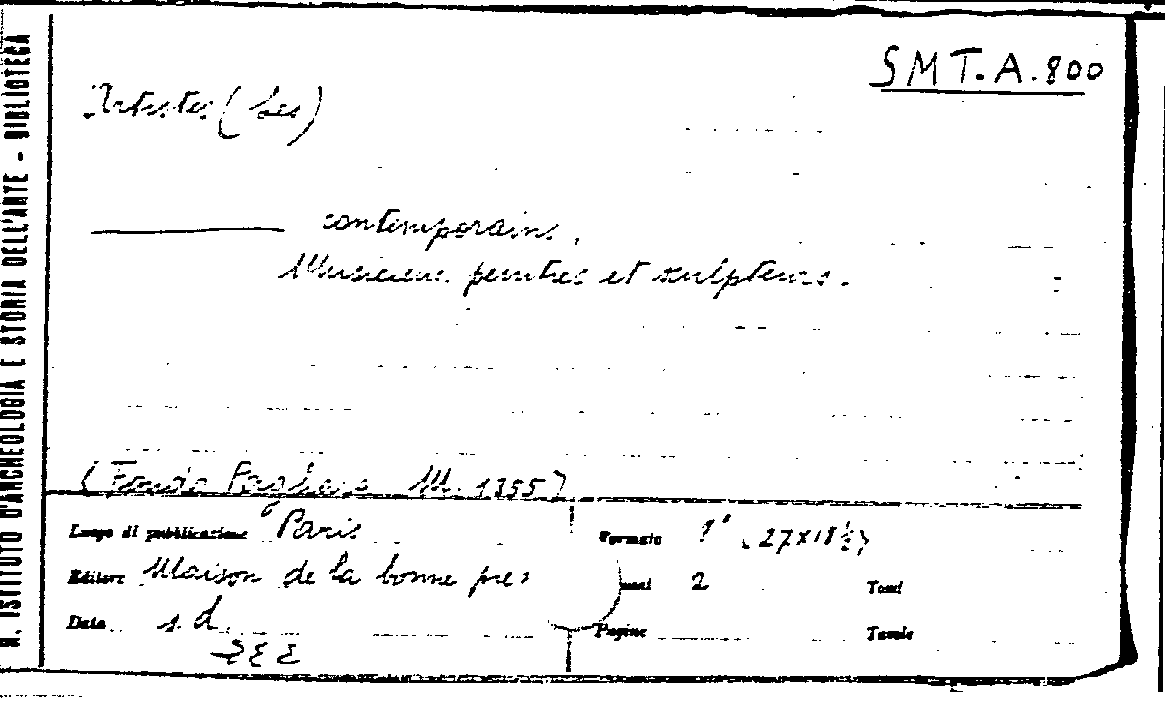 SMT. A. 800
Artistes (Les)
contemporains.
Musiciens peintres et sculpteurs.
(Fondo Pagliara M. 1355)
Luogo di pubblicazione Paris
Formato (27x18½)
Editore Maison de la bonne pres
2
Tomi
Data s. d.
Pagine
Tavole
N. ISTITUTO D'ARCHEOLOGIA E STORIA DELL'ARTE - BIBLIOTECA